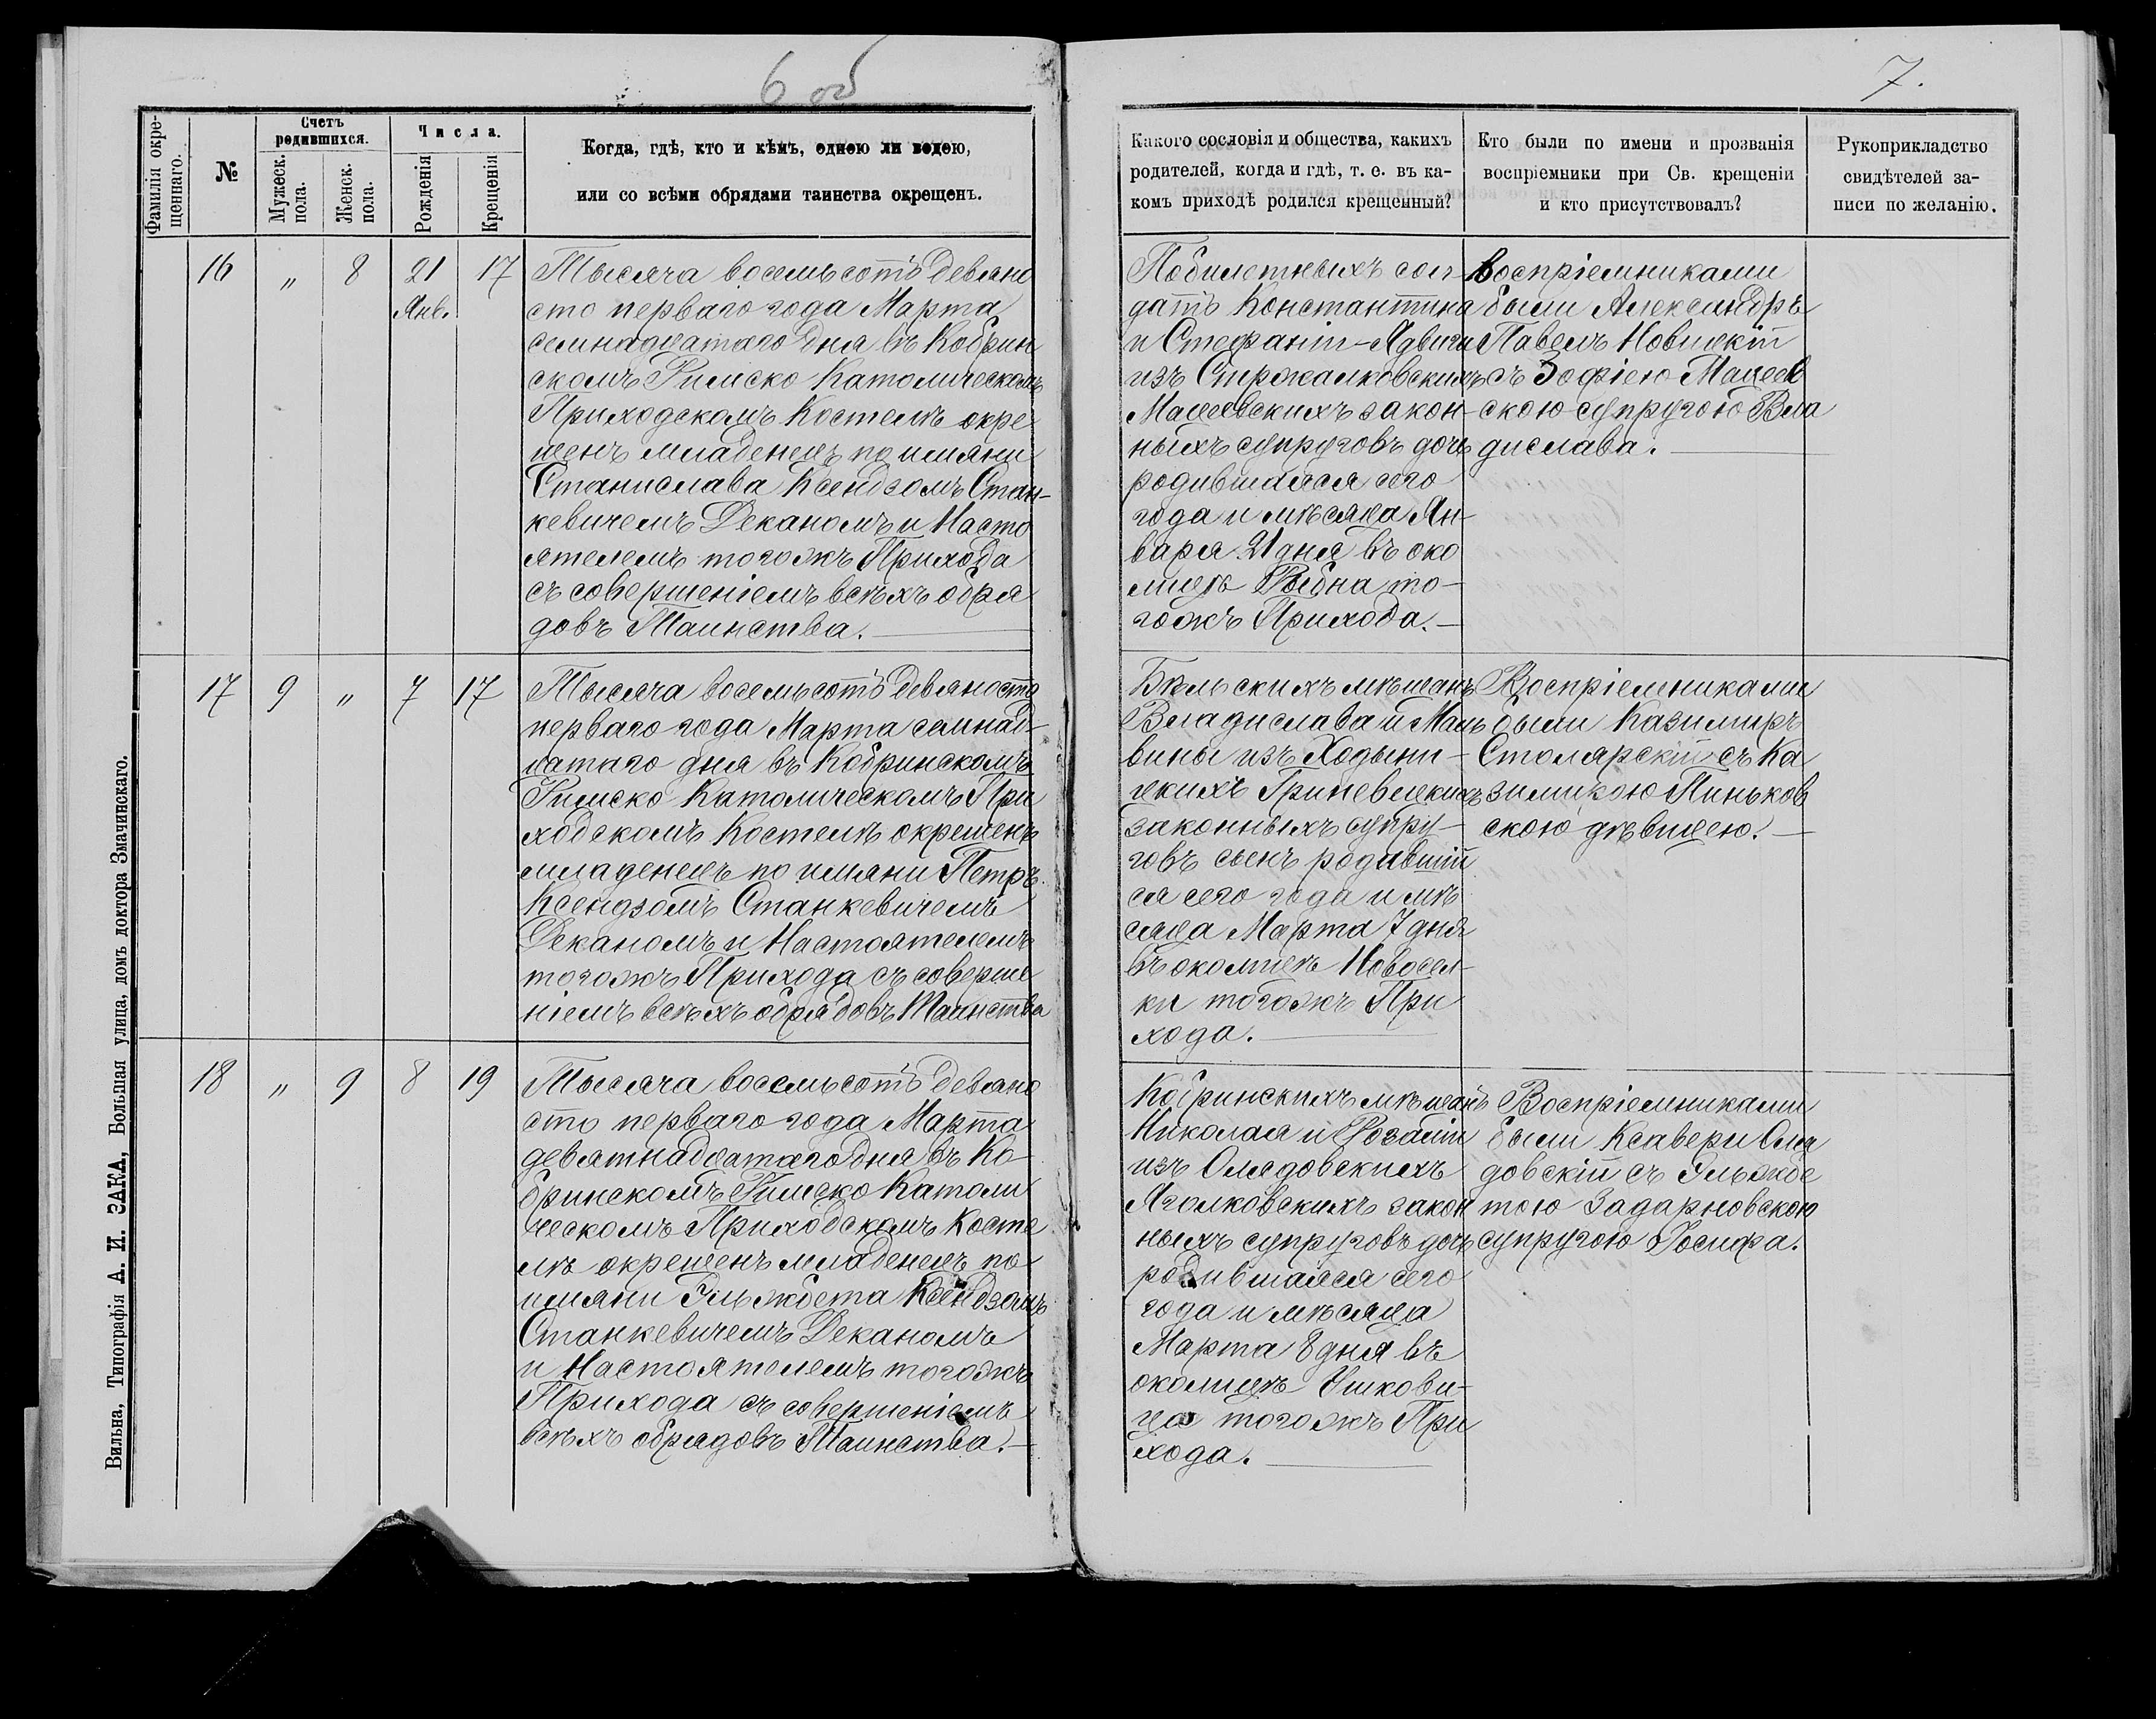 6 об
7.
Фамилія окре-
щеннаго.
№
Счетъ
родившихся.
Мужеск.
пола.
Женск.
пола.
Числа.
Рожденія
Крещенія
Когда, гдѣ, кто и кѣмъ, одною ли водою,
или со всѣми обрядами таинства окрещенъ.
Какого сословія и общества, какихъ
родителей, когда и гдѣ, т. е. въ ка-
комъ приходѣ родился крещенный?
Кто были по имени и прозванія
воспріемники при Св. крещеніи
и кто присутствовалъ?
Рукоприкладство
свидѣтелей за-
писи по желанію.
16 " 8 21 17
Янв.
Тысяча восемьсотъ девяно
сто перваго года Марта
семнадцатаго дня въ Кобрин
скомъ Римско Католическомъ
Приходскомъ Костелѣ окре
щенъ младенецъ по имяни
Станислава Ксендзомъ Стан-
кевичемъ Деканомъ и Насто
ятелемъ тогожъ Прихода
съ совершеніемъ всѣхъ обря
довъ Таинства.
Побилетныхъ сол-
датъ Константина
и Стефаніи-Ядвиги
изъ Стржалковскихъ
Мацеевскихъ закон-
ныхъ супруговъ дочь
родившаяся сего
года и мѣсяца Ян-
варя 21 дня въ око
лицѣ Рыбна то-
гожъ Прихода.
Воспріемниками
были Александръ
Павелъ Новицкій
съ Зофіею Мацеев
скою супругою Вла
дислава.
17 9 " 7 17
Тысяча восемьсотъ девяносто
перваго года Марта семнад-
цатаго дня въ Кобринскомъ
Римско Католическомъ При
ходскомъ Костелѣ окрещенъ
младенецъ по имяни Петръ
Ксендзомъ Станкевичемъ
Деканомъ и Настоятелемъ
тогожъ Прихода съ соверше
ніемъ всѣхъ обрядовъ Таинства
Бѣльскихъ мѣщанъ
Владислава и Маль
вины изъ Ходыни-
цкихъ Гриневецкихъ
законныхъ супру-
говъ сынъ родившій
ся сего года и мѣ
сяца Марта 7 дня
въ околицѣ Новосел-
ки тогожъ При
хода.
Воспріемниками
были Казимиръ
Столярскій съ Ка
зимирою Пиньков
скою дѣвицею.
18 " 9 8 19
Тысяча восемьсотъ девяно
сто перваго года Марта
девятнадцатаго дня въ Ко-
бринскомъ Римско Католи
ческомъ Приходскомъ Косте
лѣ окрещенъ младенецъ по
имяни Эльжбета Ксендзомъ
Станкевичемъ Деканомъ
и Настоятелемъ тогожъ
Прихода съ совершеніемъ
всѣхъ обрядовъ Таинства.
Кобринскихъ мѣщанъ
Николая и Розаліи
изъ Олядовскихъ
Яголковскихъ закон
ныхъ супруговъ дочь
родившаяся сего
года и мѣсяца
Марта 8 дня въ
околицѣ Ушкови-
ца тогожъ При
хода.
Воспріемниками
были Ксавери Оля
довскій съ Эльжбе
тою Задарновскою
супругою Іосифа.
Вильна, Типографія А. И. ЗАКА, Большая улица, домъ доктора Змачинскаго.